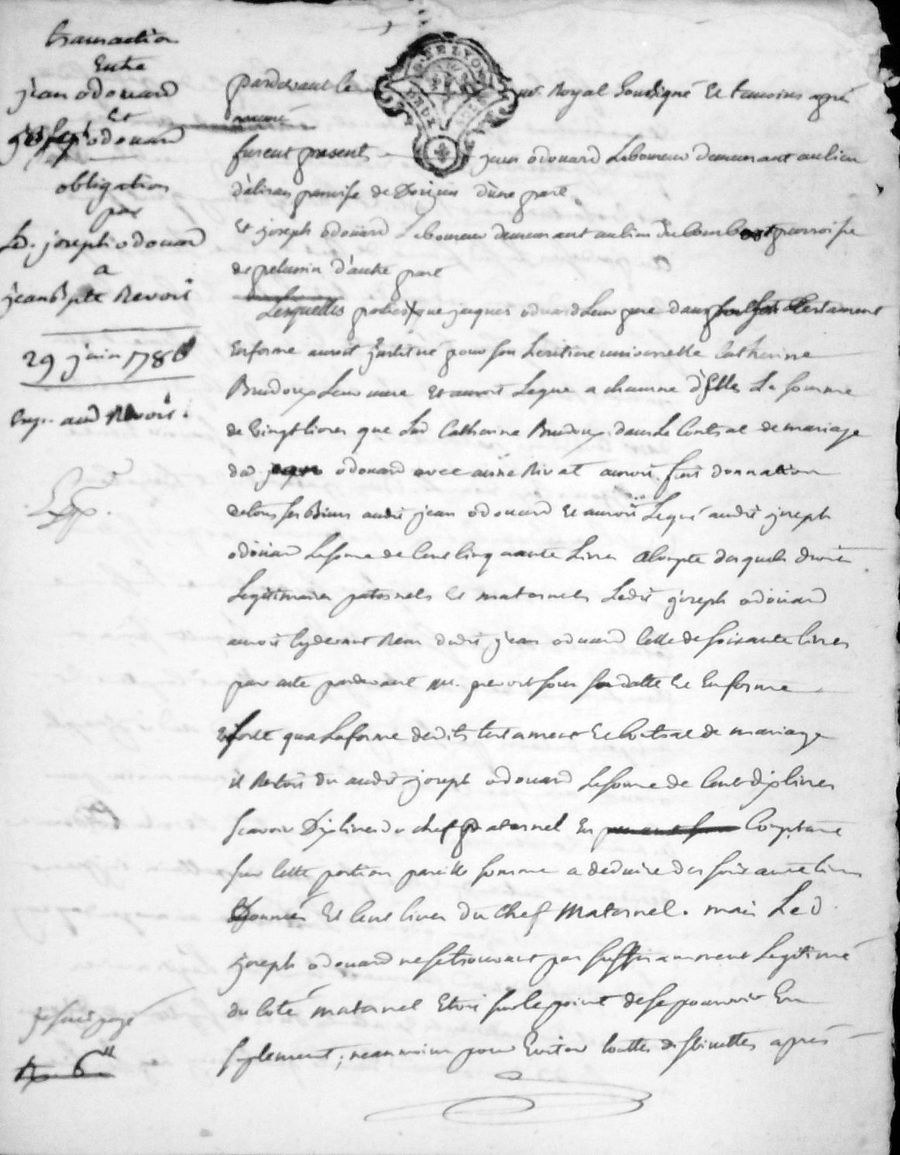 transaction
Entre
jean odouard
Et
joseph odouard
obligation
par
Led. joseph odouard
a
jean bpte Revoit
29 juin 1786
Exp. aud Revoit.
pardevant le no.re Royal Soussigné Et temoins apré
nommé
furent presents jean odouard Laboureur demeurant au lieu
paroisse de d'une part
Et joseph odouard Laboureur demeurant au lieu du parroisse
de pelussin d'autre part
Lesquelles parties que jacques odouard Leur pere dans son testament
En forme auroit jnstitué pour son heritiere universelle Catherine
Leur mere Et auroit Legué a chacune d'Elles La somme
de vingt livres que Lad Catherine dans Le Contrat de mariage
dud odouard avec Rivat auroit fait donnation
de tous ses Biens audit jean odouard Et auroit Legué audit joseph
odoüard La some de Cent Cinquante Livres a Compte desquels droits
Legitimaires paternels Et maternels Ledit joseph odoüard
auroit Cydevant Reçu dudit jean odouard Celle de soixante livres
par acte pardevant M. prevost sous sa datte Et En forme
En sorte qu'a La forme desdits testament Et Contrat de mariage
il Restoit du audit joseph odouard La some de Cent dix livres
Scavoir Dix livres du chef paternel En Comptant
sur Cette portion pareille somme a deduire des soixante livres
données Et Cent livres du Chef Maternel. mais Led.
joseph odouard ne se trouvant pas suffisamment Legitimé
du Coté maternel Etoit sur le point de se pourvoir En
suplement; neanmoins pour Eviter touttes discutions aprés